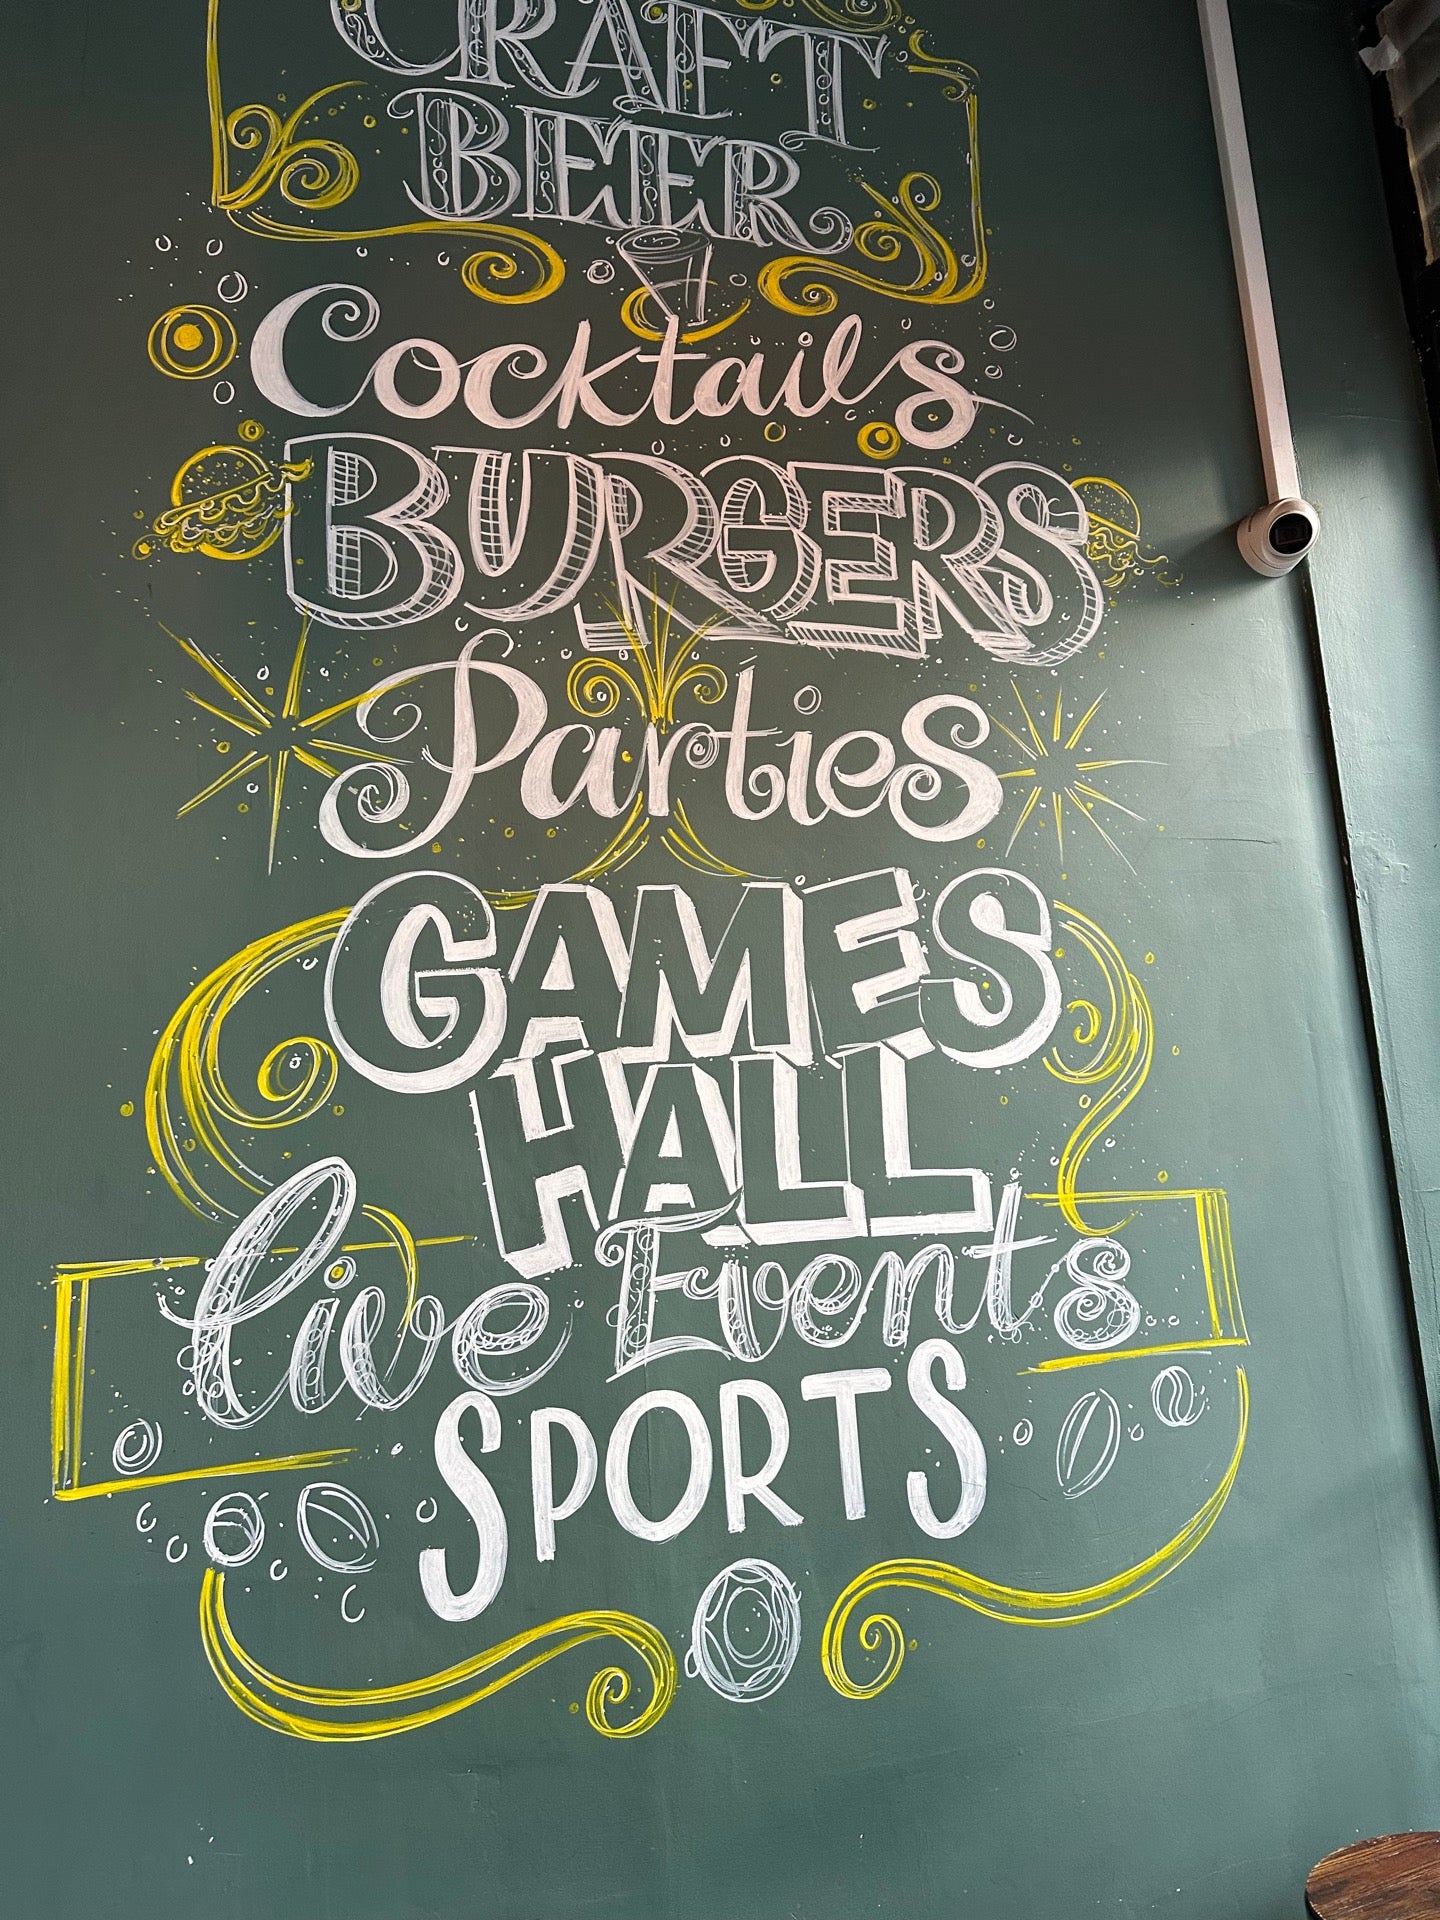 CRAFT
BEER
Cocktails
BURGERS
Parties
GAMES
HALL
live Events
SPORTS